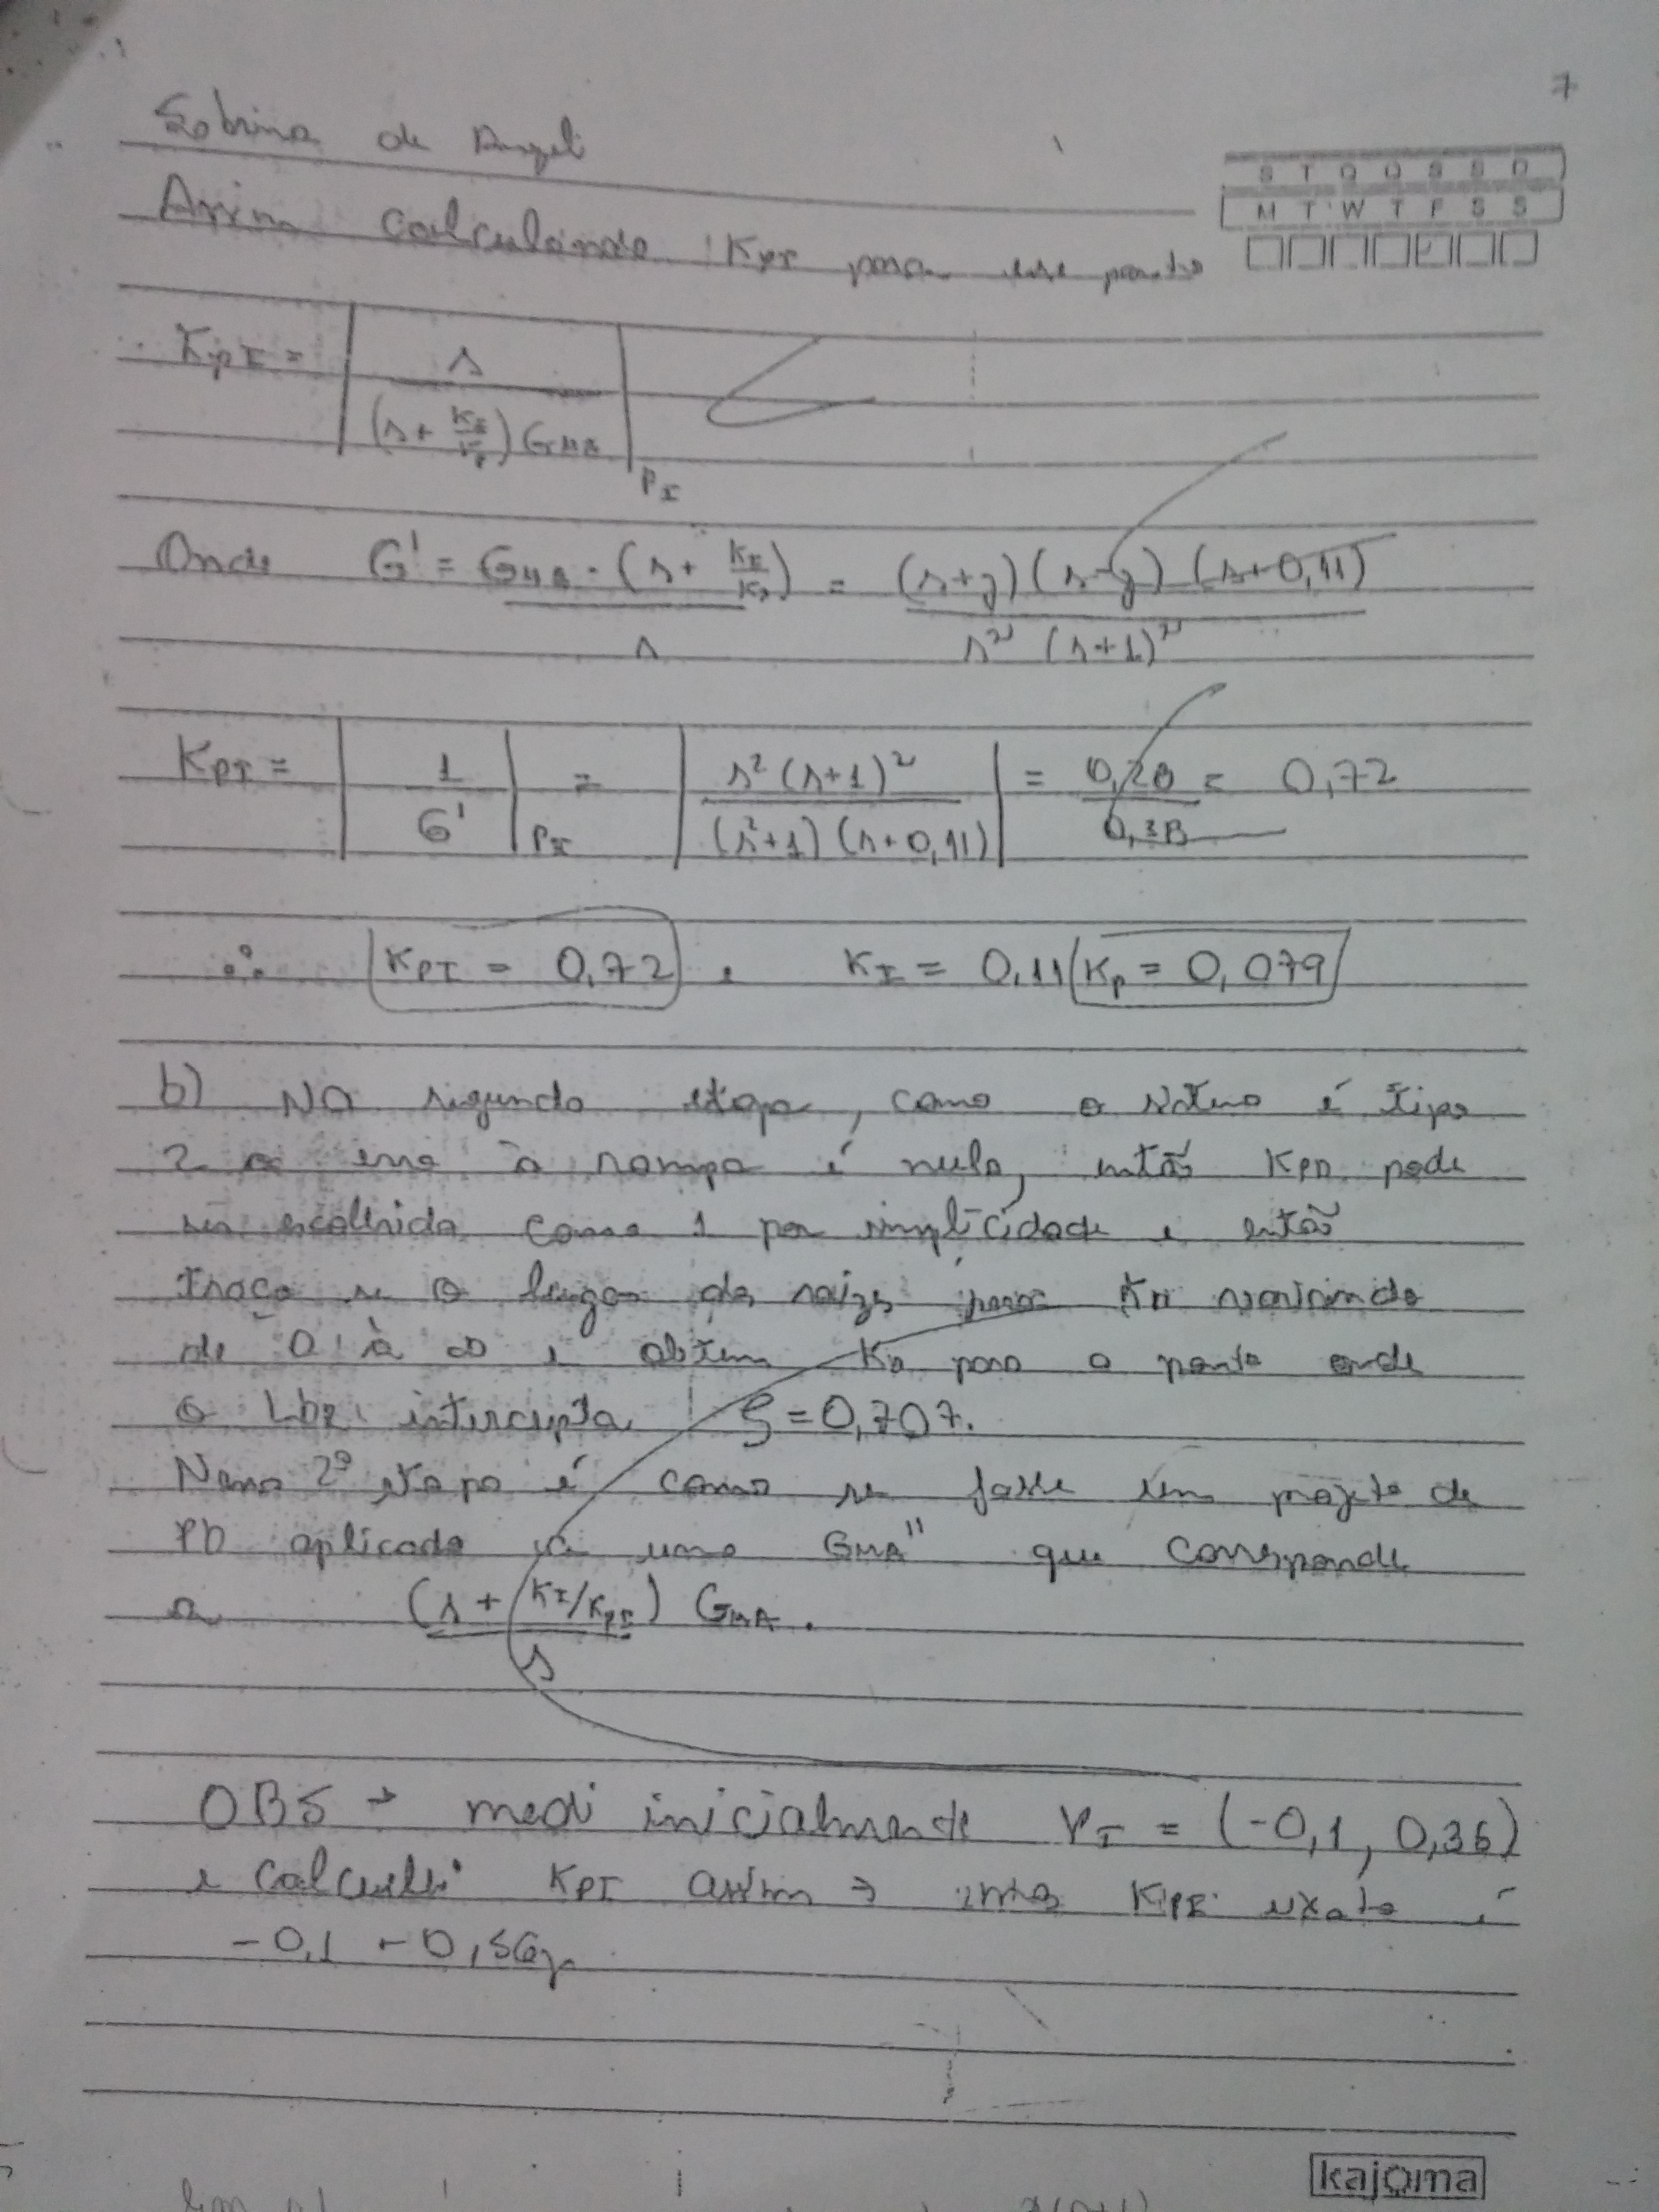 7
Sabrina de Angeli
S T Q Q S S D
M T W T F S S
Assim calculando KPI para esse ponto
KPI = | s / ((s + KI/KP) GMA) | PI
Onde G' = GMA . (s + KI/KP) / s = (s+j)(s-j)(s+0,11) / s² (s+1)²
KPI = | 1 / G' | PI = | s² (s+1)² / (s²+1) (s+0,11) | = 0,28 / 0,38 = 0,72
∴ KPI = 0,72 e KI = 0,11 Kp = 0,079
b) Na segunda etapa, como o sistema é tipo
2 o erro à rampa é nulo, então KPD pode
ser escolhido como 1 por simplicidade e então
traça se o lugar das raízes para KD variando
de 0 à ∞ e obtem KD para o ponto onde
o LDR intercepta ξ=0,707.
Nessa 2ª etapa é como se fosse um projeto de
PD aplicado a uma GMA" que corresponde
a (s + KI/KPI) GMA.
s
OBS → medi inicialmente PI = (-0,1, 0,36)
e calculei KPI assim → mas KPI exato é
-0,1 + 0,56j
kajoma